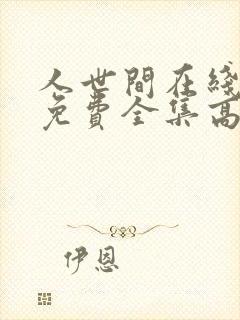 人世間在綫
免費全集高
伊恩